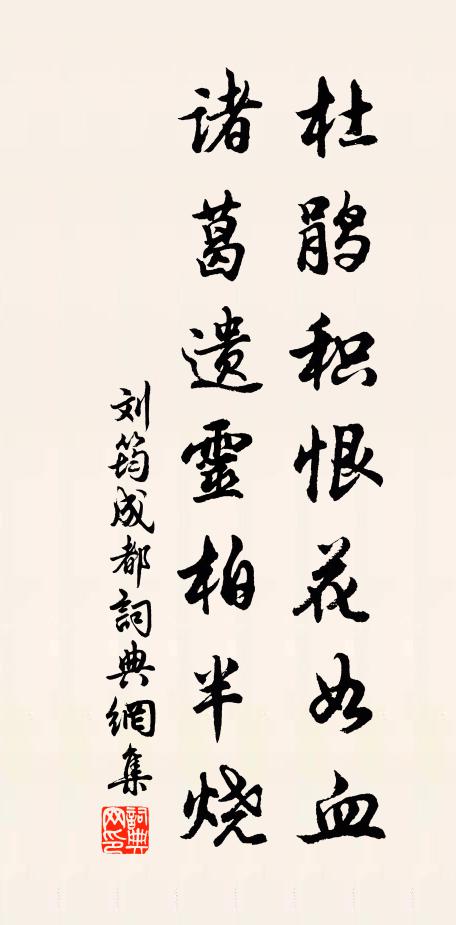 杜鹃积恨花如血
诸葛遗靈柏半烧
刘筠成都詞典網集
詞典网印